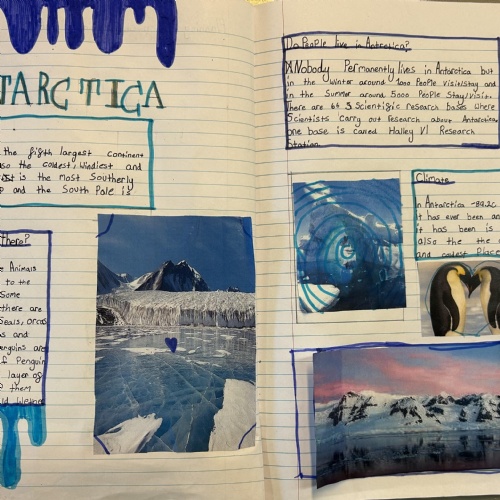 TARCTICA
the fifth largest continent
so the coldest, Windiest and
is the most Southerly
and the South Pole is
there?
Animals
to the
Some
there are
Seals, orcas
as and
Penguins are
f Penguin
layer of
them
Do People live in Antarctica?
Nobody Permanently lives in Antarctica but
in the Winter around 1000 People Visit/stay and
in the Summer around 5000 People Stay/Visit.
There are Scientific research bases where
Scientists Carry out research about Antarctica,
one base is called Halley VI Research
Station.
Climate
in Antarctica -89.2c
it has ever been an
it has been is
also the the
and coldest Place